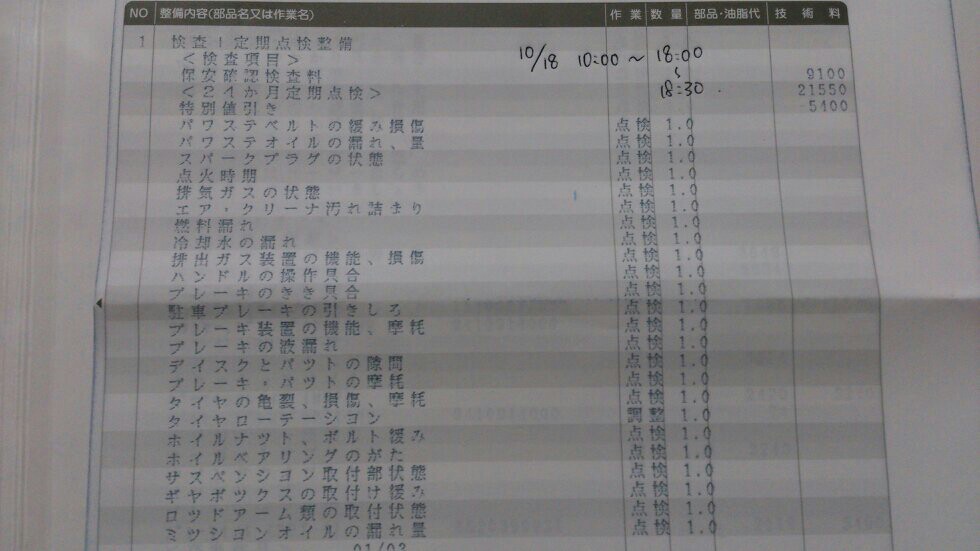 NO 整備内容(部品名又は作業名) 作業 数量 部品・油脂代 技術料
1 検査1定期点検整備
<検査項目> 10/18 10:00 ~ 18:00
保安確認検査料 9100
<24か月定期点検> 18:30 21550
特別値引き -5400
パワステベルトの緩み損傷 点検 1.0
パワステオイルの漏れ、量 点検 1.0
スパークプラグの状態 点検 1.0
点火時期 点検 1.0
排気ガスの状態 点検 1.0
エア・クリーナ汚れ詰まり 点検 1.0
燃料漏れ 点検 1.0
冷却水の漏れ 点検 1.0
排出ガス装置の機能、損傷 点検 1.0
ハンドルの操作具合 点検 1.0
ブレーキのきき具合 点検 1.0
駐車ブレーキの引きしろ 点検 1.0
ブレーキ装置の機能、摩耗 点検 1.0
ブレーキの液漏れ 点検 1.0
デイスクとパツトの隙間 点検 1.0
ブレーキ・パツトの摩耗 点検 1.0
タイヤの亀裂、損傷、摩耗 点検 1.0
タイヤローテーシコン 調整 1.0
ホイルナツト、ボルト緩み 点検 1.0
ホイルベアリングのがた 点検 1.0
サスペンシコン取付部状態 点検 1.0
ギヤボツクスの取付け緩み 点検 1.0
ロツドアーム類の取付状態 点検 1.0
ミツシコンオイルの漏れ量 点検 1.0
01/03